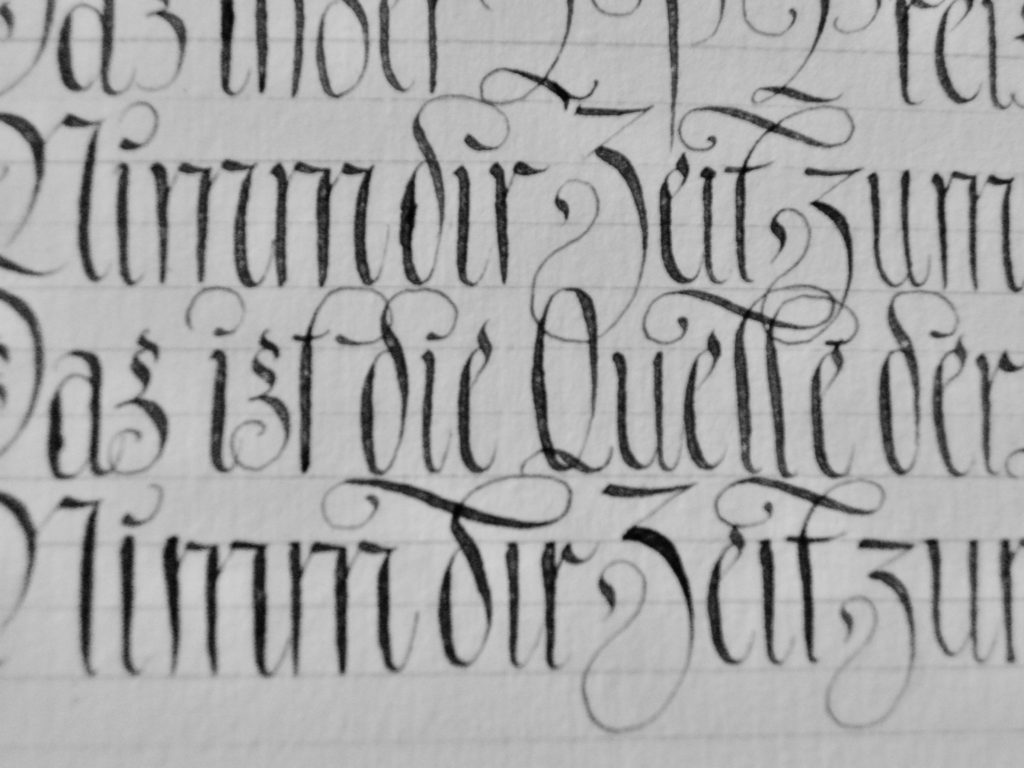 Das
Nimm dir Zeit zum
Das ist die Quelle der
Nimm dir Zeit zum